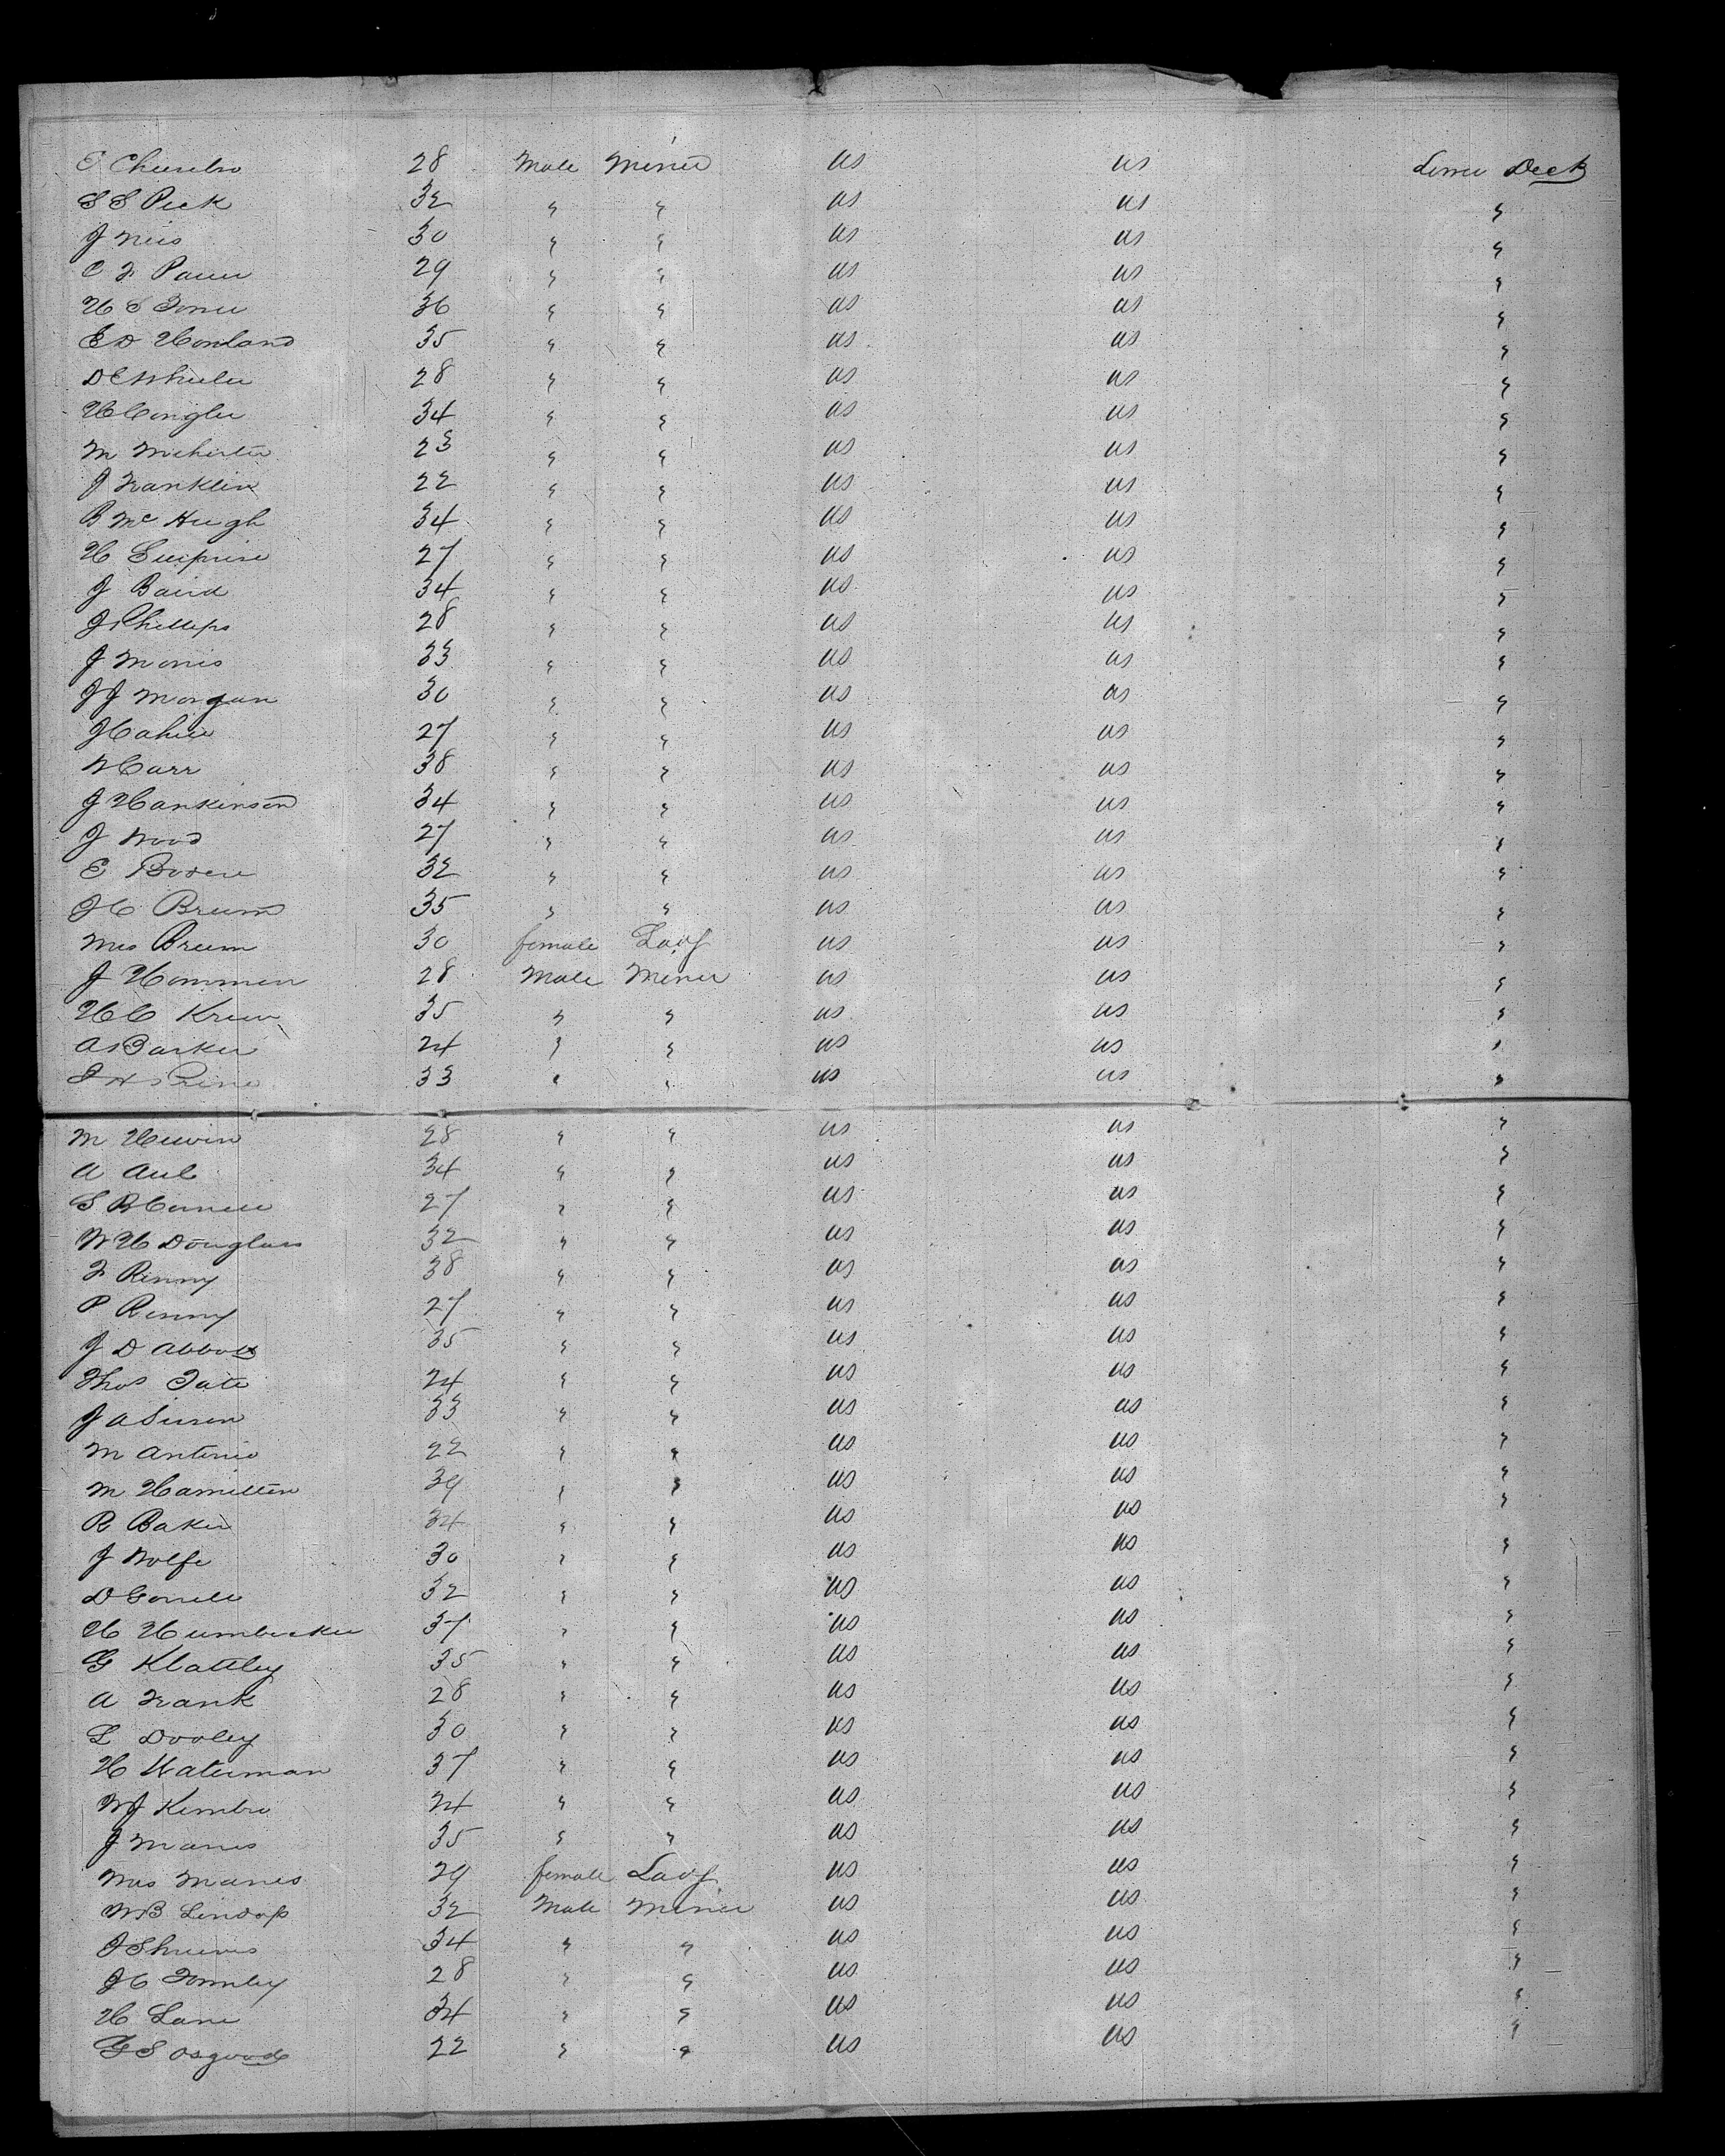 E Churchro 28 Male Miner US US Lower Deck
S S Peck 32 " " US US "
J Neis 30 " " US US "
C F Paver 29 " " US US "
H S Toner 36 " " US US "
E D Howland 35 " " US US "
D C Wheeler 28 " " US US "
H Congler 34 " " US US "
M 23 " " US US "
J Franklin 22 " " US US "
B McHugh 34 " " US US "
H Surprise 27 " " US US "
J Baird 34 " " US US "
J Phillips 28 " " US US "
J Morris 33 " " US US "
J J Morgan 30 " " US US "
J Cahill 27 " " US US "
W Carr 38 " " US US "
J Hankinson 34 " " US US "
J Wood 27 " " US US "
E Boden 32 " " US US "
J C Brum 35 " " US US "
Mrs Brum 30 female Lady US US "
J Hommen 28 Male Miner US US "
H C Kreur 35 " " US US "
A Barker 24 " " US US "
33 " " US US "
M Hewin 28 " " US US "
A Aul 34 " " US US "
S B 27 " " US US "
W H Douglass 32 " " US US "
F Renny 38 " " US US "
P Renny 27 " " US US "
J D Abbott 35 " " US US "
Thos Tate 24 " " US US "
J A 33 " " US US "
M Antonio 22 " " US US "
M Hamilton 39 " " US US "
R Baker 34 " " US US "
J Wolfe 30 " " US US "
D Gorrell 32 " " US US "
H Humbecker 37 " " US US "
G Klattley 35 " " US US "
A Frank 28 " " US US "
L Dooley 30 " " US US "
H Waterman 37 " " US US "
W J Kimbro 24 " " US US "
J Manes 35 " " US US "
Mrs Manes 29 female Lady US US "
W B Lindop 32 Male Miner US US "
J Shrieves 34 " " US US "
J C Tormley 28 " " US US "
H Lane 34 " " US US "
G S Osgood 22 " " US US "